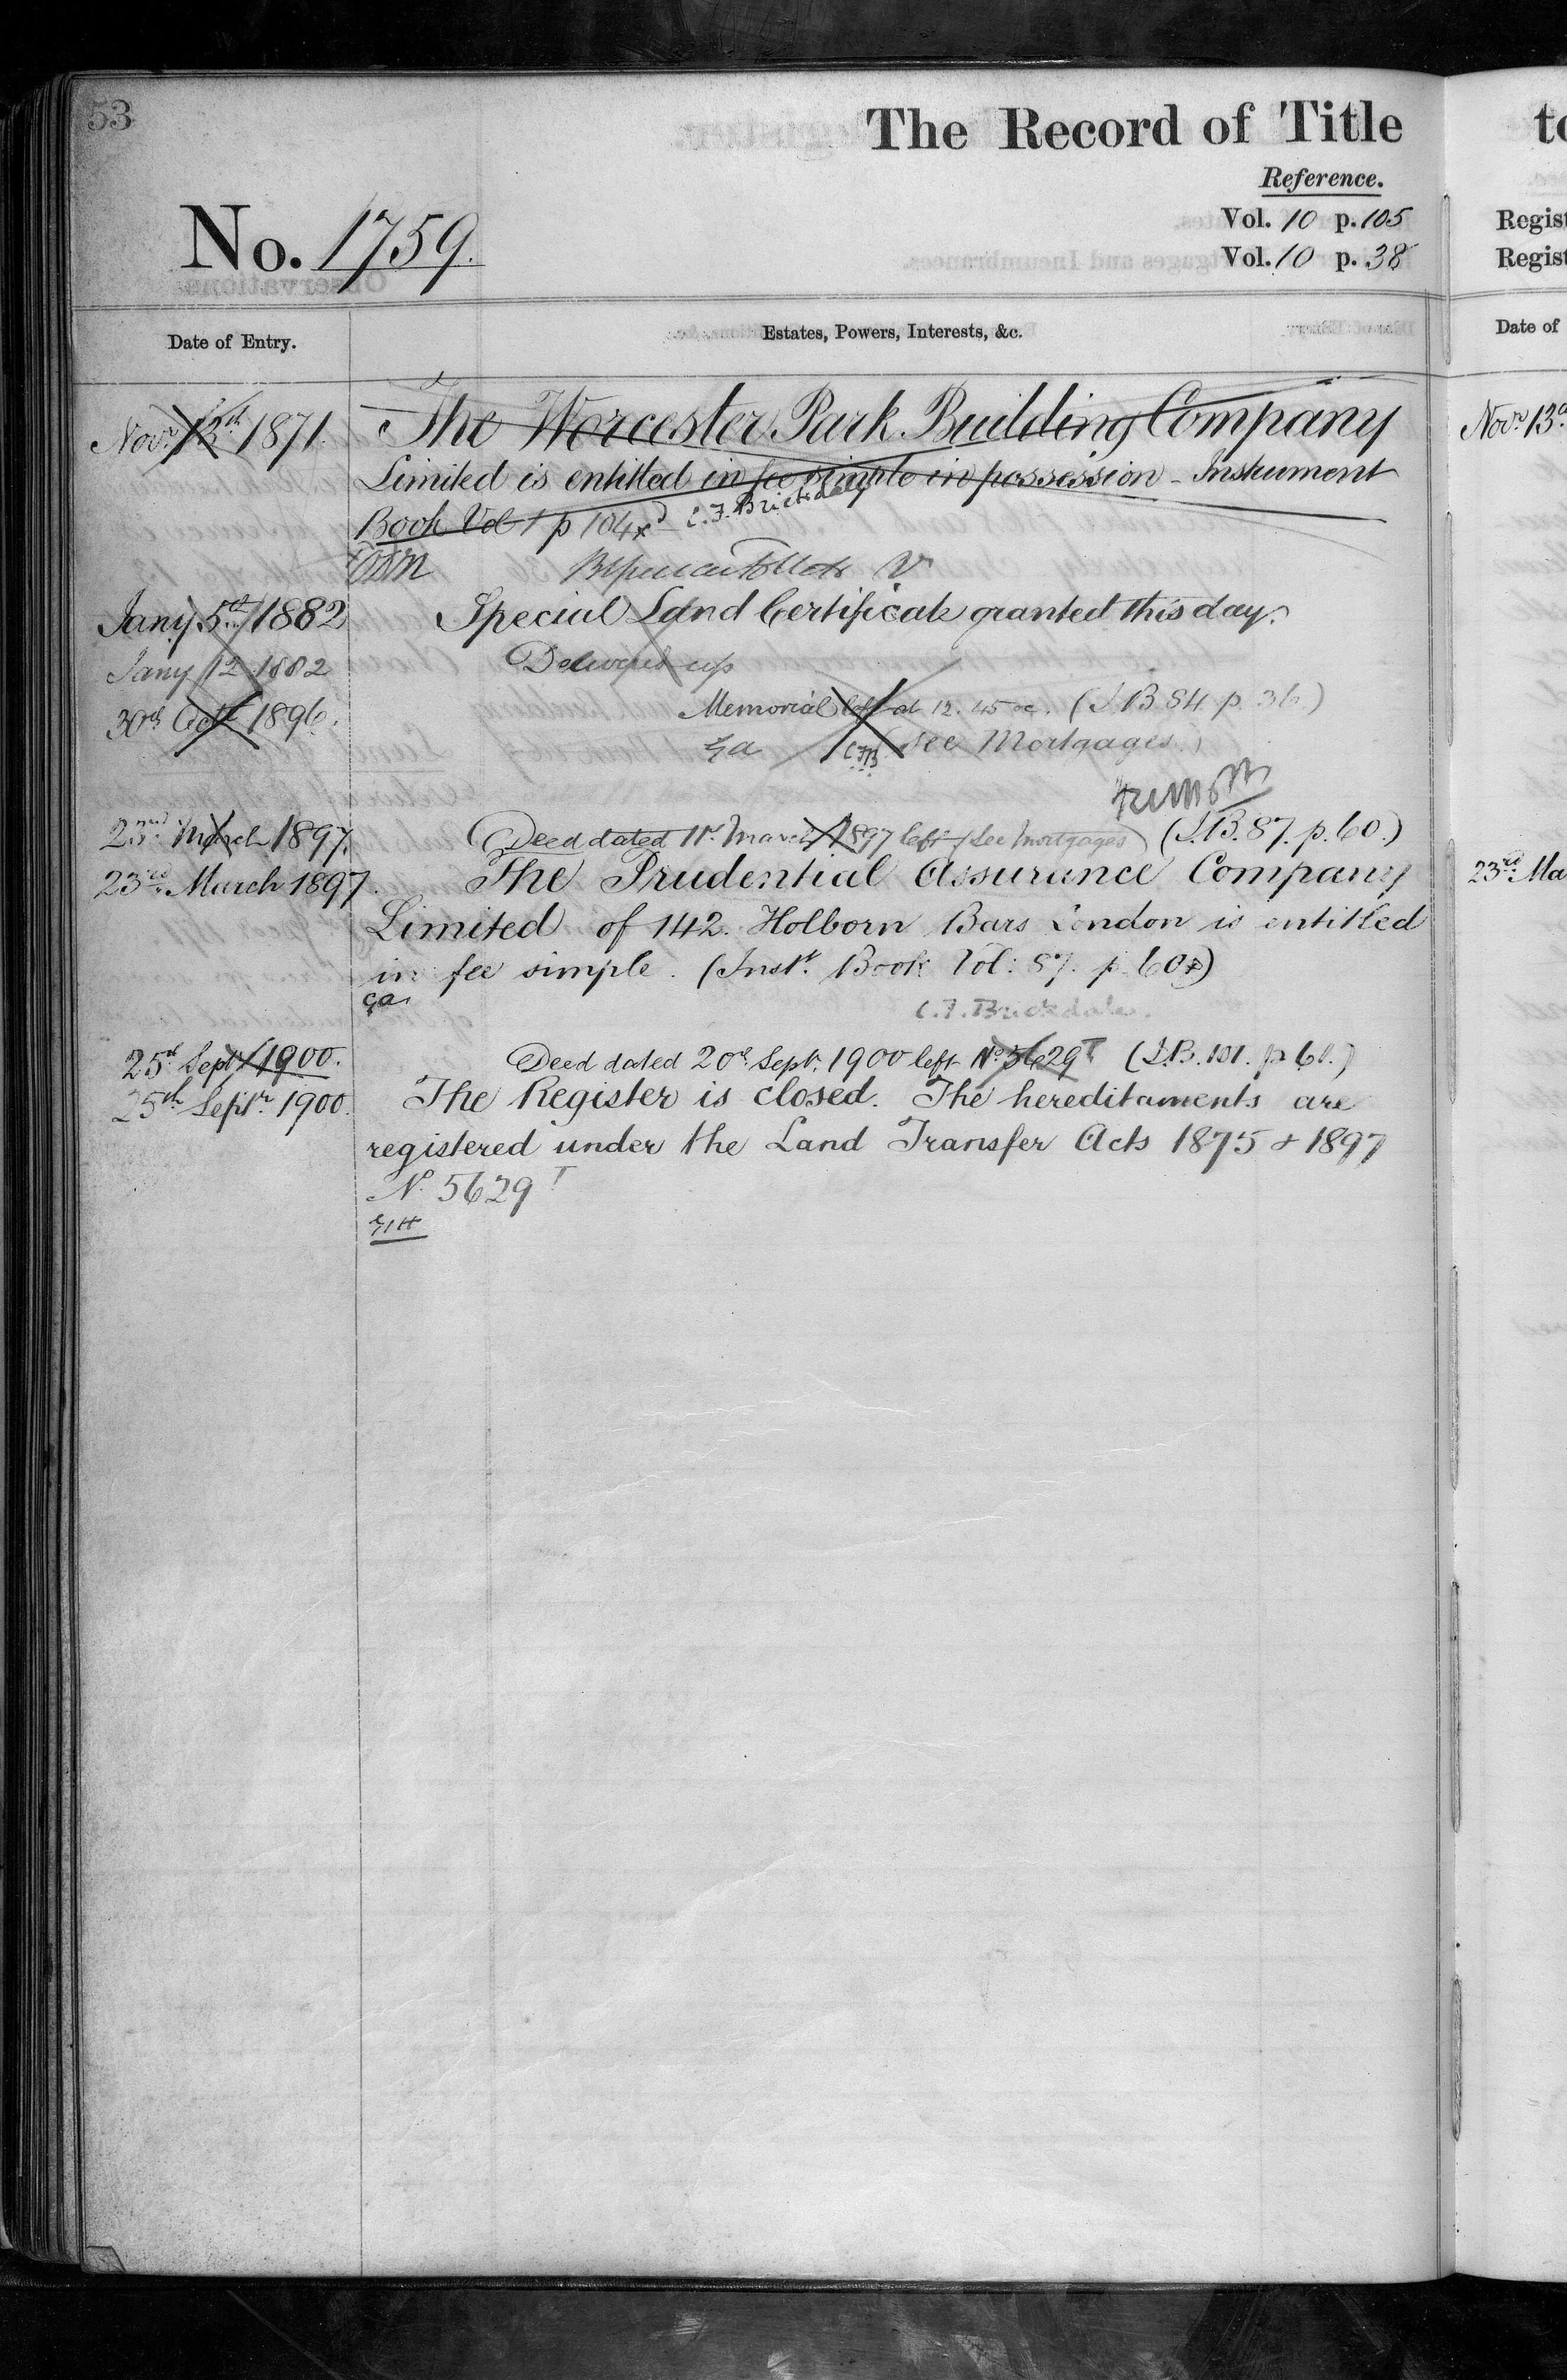 53
The Record of Title
Reference.
No. 1759.
Vol. 10 p. 105
Vol. 10 p. 38
Regist
Regist
Date of Entry.
Estates, Powers, Interests, &c.
Date of
Novr. 13th 1871. The Worcester Park Building Company
Limited is entitled in fee simple in possession - Instrument
Book Vol 1 p 104x C.F. Brickdale
Jany. 5th 1882 Special Land Certificate granted this day.
Jany 12 1882 Delivered up
30th Octr 1896. Memorial left at 12.45 (I.B 84 p. 36.)
Ga CFB (see Mortgages.)
23rd March 1897. Deed dated 11th March 1897 left (see Mortgages) (I.B. 87. p. 60.)
23rd March 1897. The Prudential Assurance Company
Limited of 142. Holborn Bars London is entitled
in fee simple. (Instt. Book Vol: 87. p. 60x)
Ga
C.F. Brickdale.
25th Septr 1900. Deed dated 20th Septr. 1900 left No. 5629T (I.B. 101. p 61.)
25th Septr. 1900. The Register is closed. The hereditaments are
registered under the Land Transfer Acts 1875 & 1897
No. 5629T
Novr. 13
23rd Ma